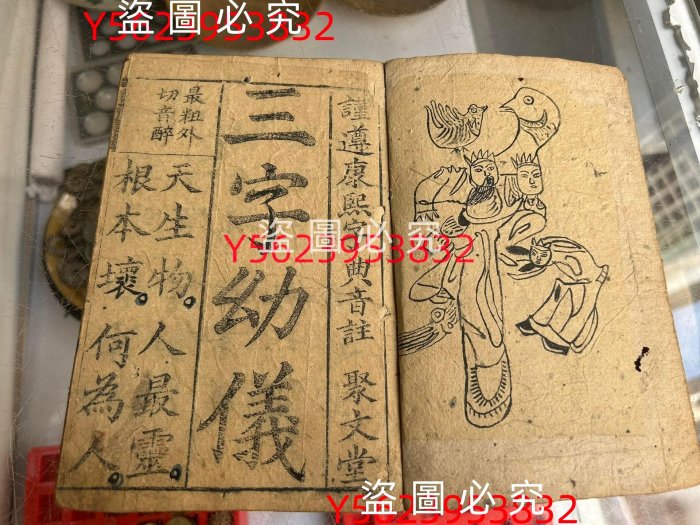 盜圖必究
Y5625953832
謹遵康熙字典音註 聚文堂
三字幼儀
最粗外
切音醉
天生物。人最靈。
根本壞。何為人。
盜圖必究
Y5625953832
盜圖必究
Y5625953832